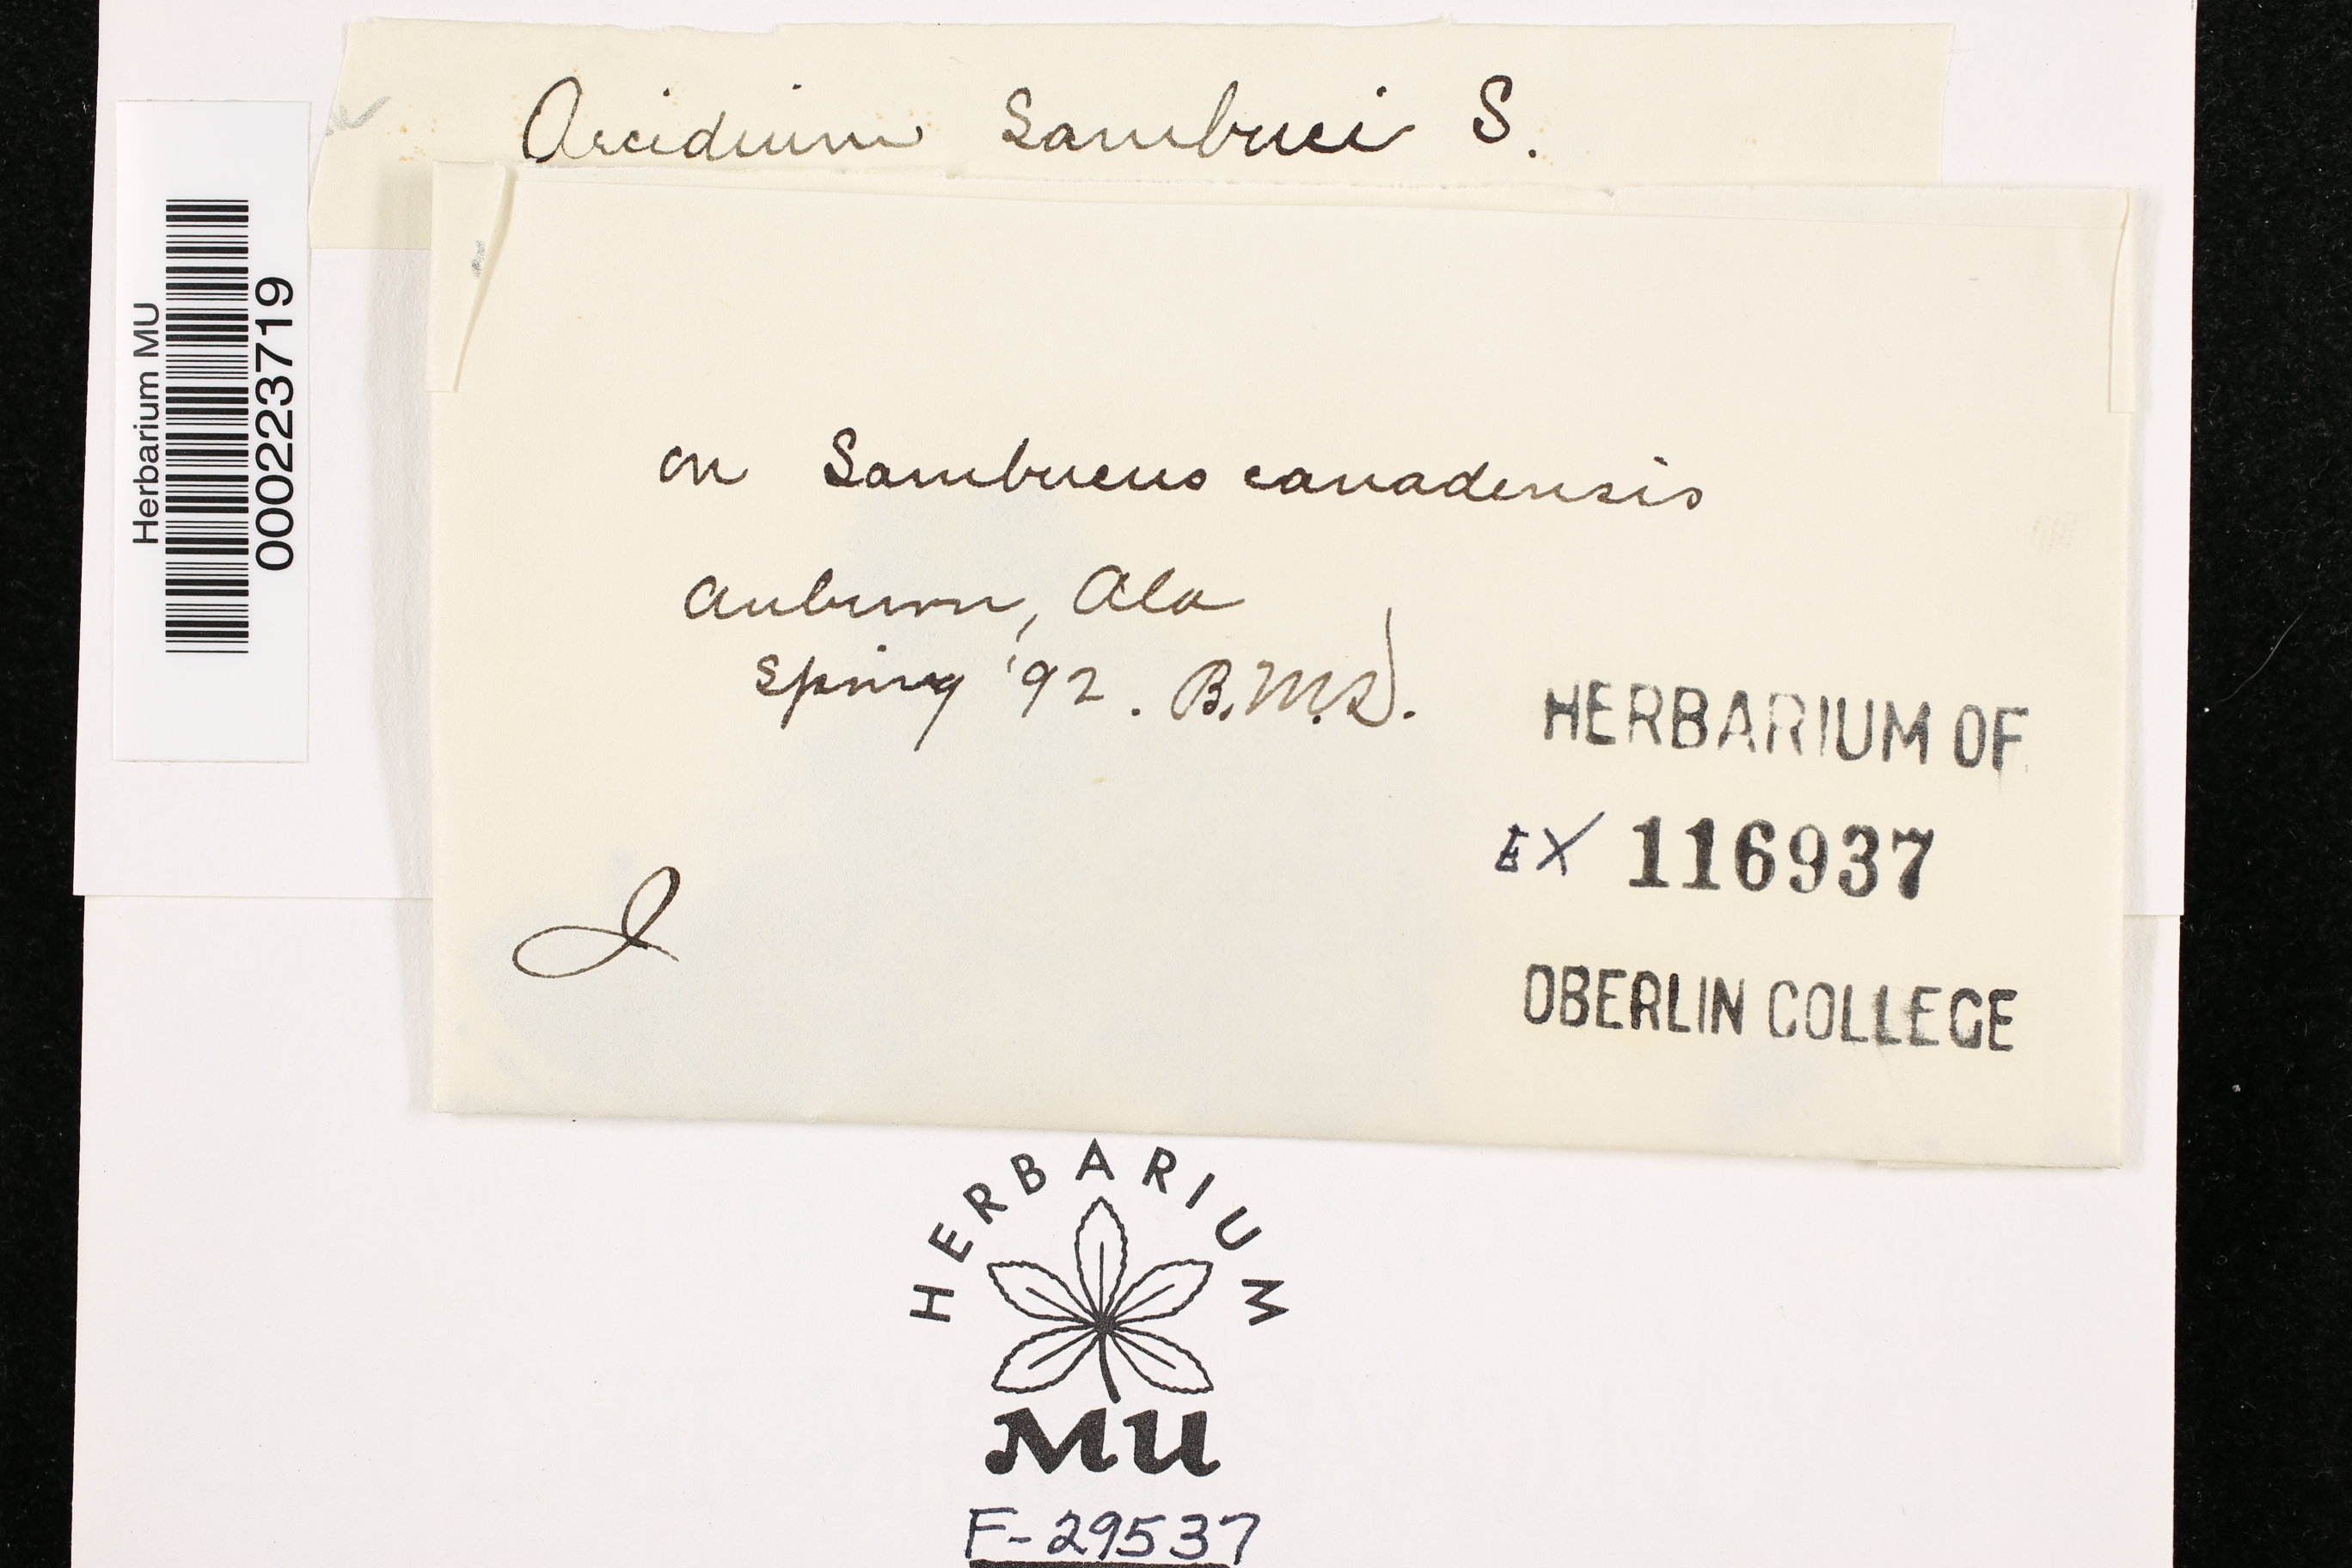 Aecidium Sambuci S.
Herbarium MU
000223719
on Sambucus canadensis
Auburn, Ala
Spring '92. B.M.D.
HERBARIUM OF
EX 116937
I
OBERLIN COLLEGE
HERBARIUM
MU
F-29537